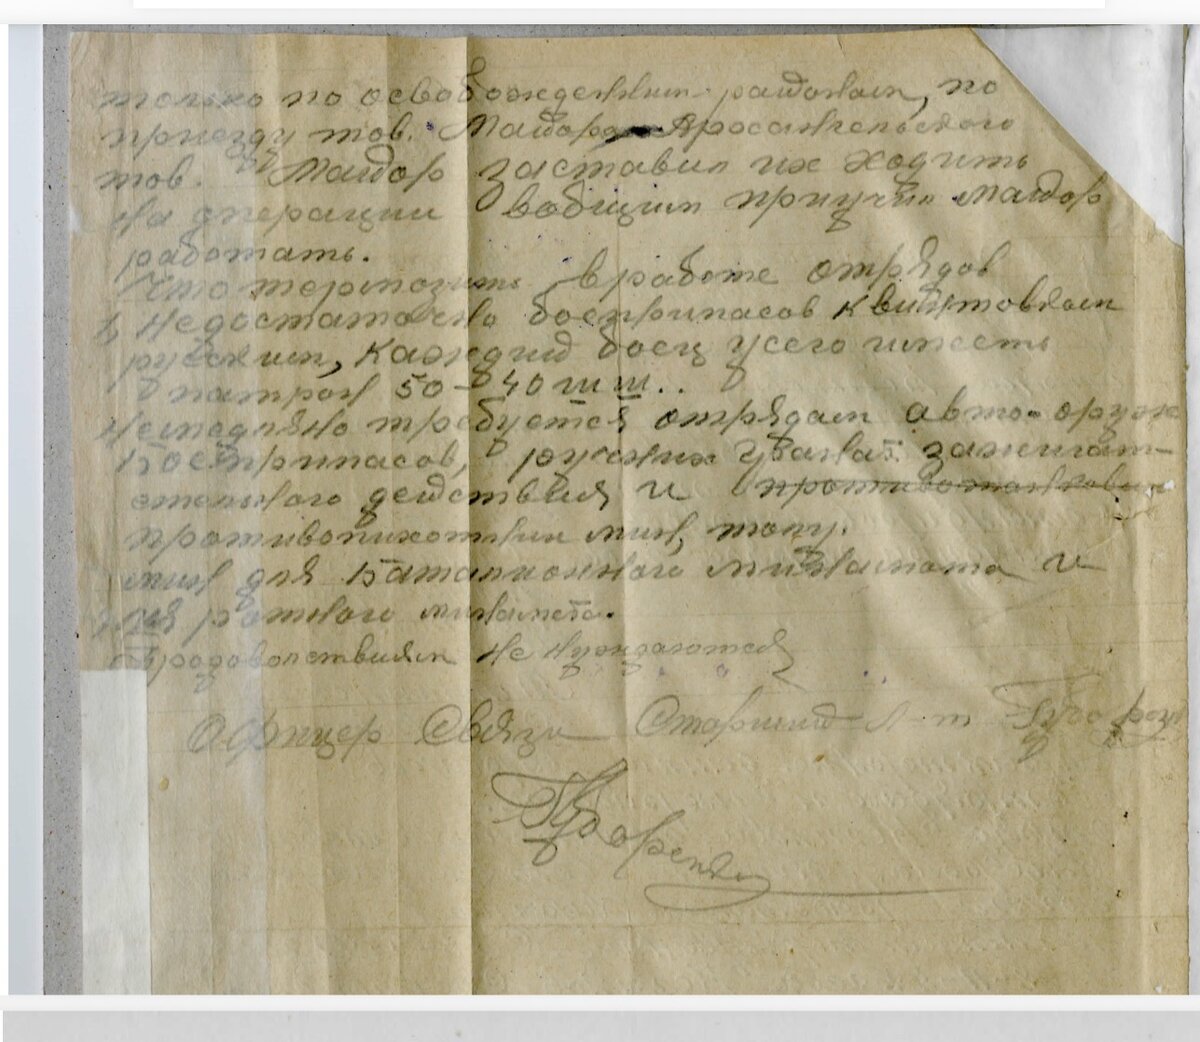 только по освобожденным районам, по
приезду тов. Майора Аросангельского
тов. Майор заставил их ходить
на операции вобщим приучил Майор
работать.
Что тормозить в работе отрядов
недостаточно боеприпасов к винтовкам
русским, каждий боец усего имееть
патрон 50-40 шт..
Немедляно требуется отрядам авто-оруж
боеприпасов, ручних гранат зажигат-
ельного действия и противотанкових
противопихотних мин, толу.
мин для баталионного миномота и
для ротного миномета.
Продоволствиям не нуждаются
Офицер Связи Старший Л-т